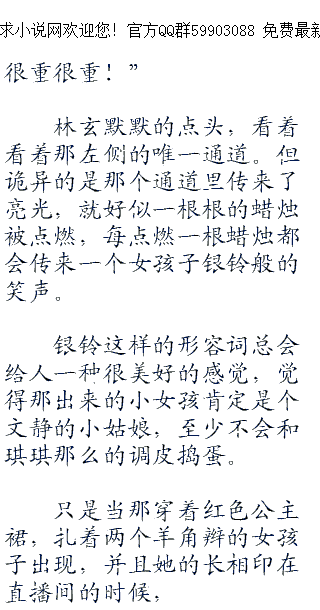 求小说网欢迎您！官方QQ群59903088 免费最新
很重很重！”
林玄默默的点头，看着
看着那左侧的唯一通道。但
诡异的是那个通道里传来了
亮光，就好似一根根的蜡烛
被点燃，每点燃一根蜡烛都
会传来一个女孩子银铃般的
笑声。
银铃这样的形容词总会
给人一种很美好的感觉，觉
得那出来的小女孩肯定是个
文静的小姑娘，至少不会和
琪琪那么的调皮捣蛋。
只是当那穿着红色公主
裙，扎着两个羊角辫的女孩
子出现，并且她的长相印在
直播间的时候，